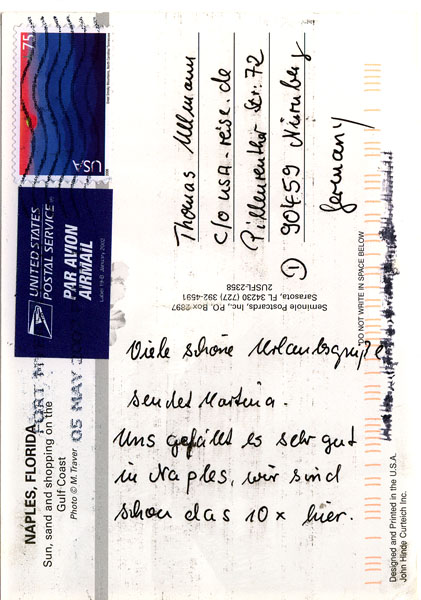 NAPLES, FLORIDA
Sun, sand and shopping on the
Gulf Coast
Photo © M. Traver
FORT M
05 MAY
UNITED STATES
POSTAL SERVICE
PAR AVION
AIRMAIL
Label 19-B January 2002
75
USA
Viele schöne Urlaubsgrüße
sendet Martina.
Uns gefällt es sehr gut
in Naples, wir sind
schon das 10x hier.
Seminole Postcards, Inc., P.O. Box 2897
Sarasota, FL 34230 (727) 392-4691
2USFL-2358
Thomas Ullmann
c/o USA-reise.de
Pillenreuther Str. 72
90459 Nürnberg
Germany
DO NOT WRITE IN SPACE BELOW
Designed and Printed in the U.S.A.
John Hinde Curteich Inc.